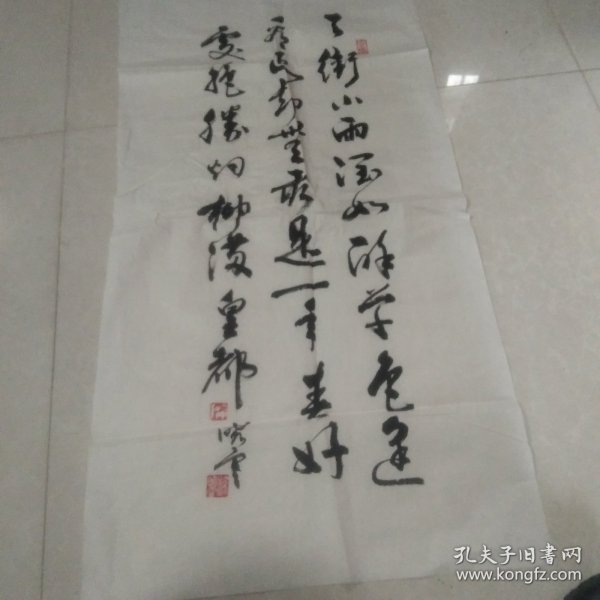 天街小雨润如酥草色遥
看近却无最是一年春好
处绝胜烟柳满皇都
晓军
孔夫子旧书网
www.kongfz.com